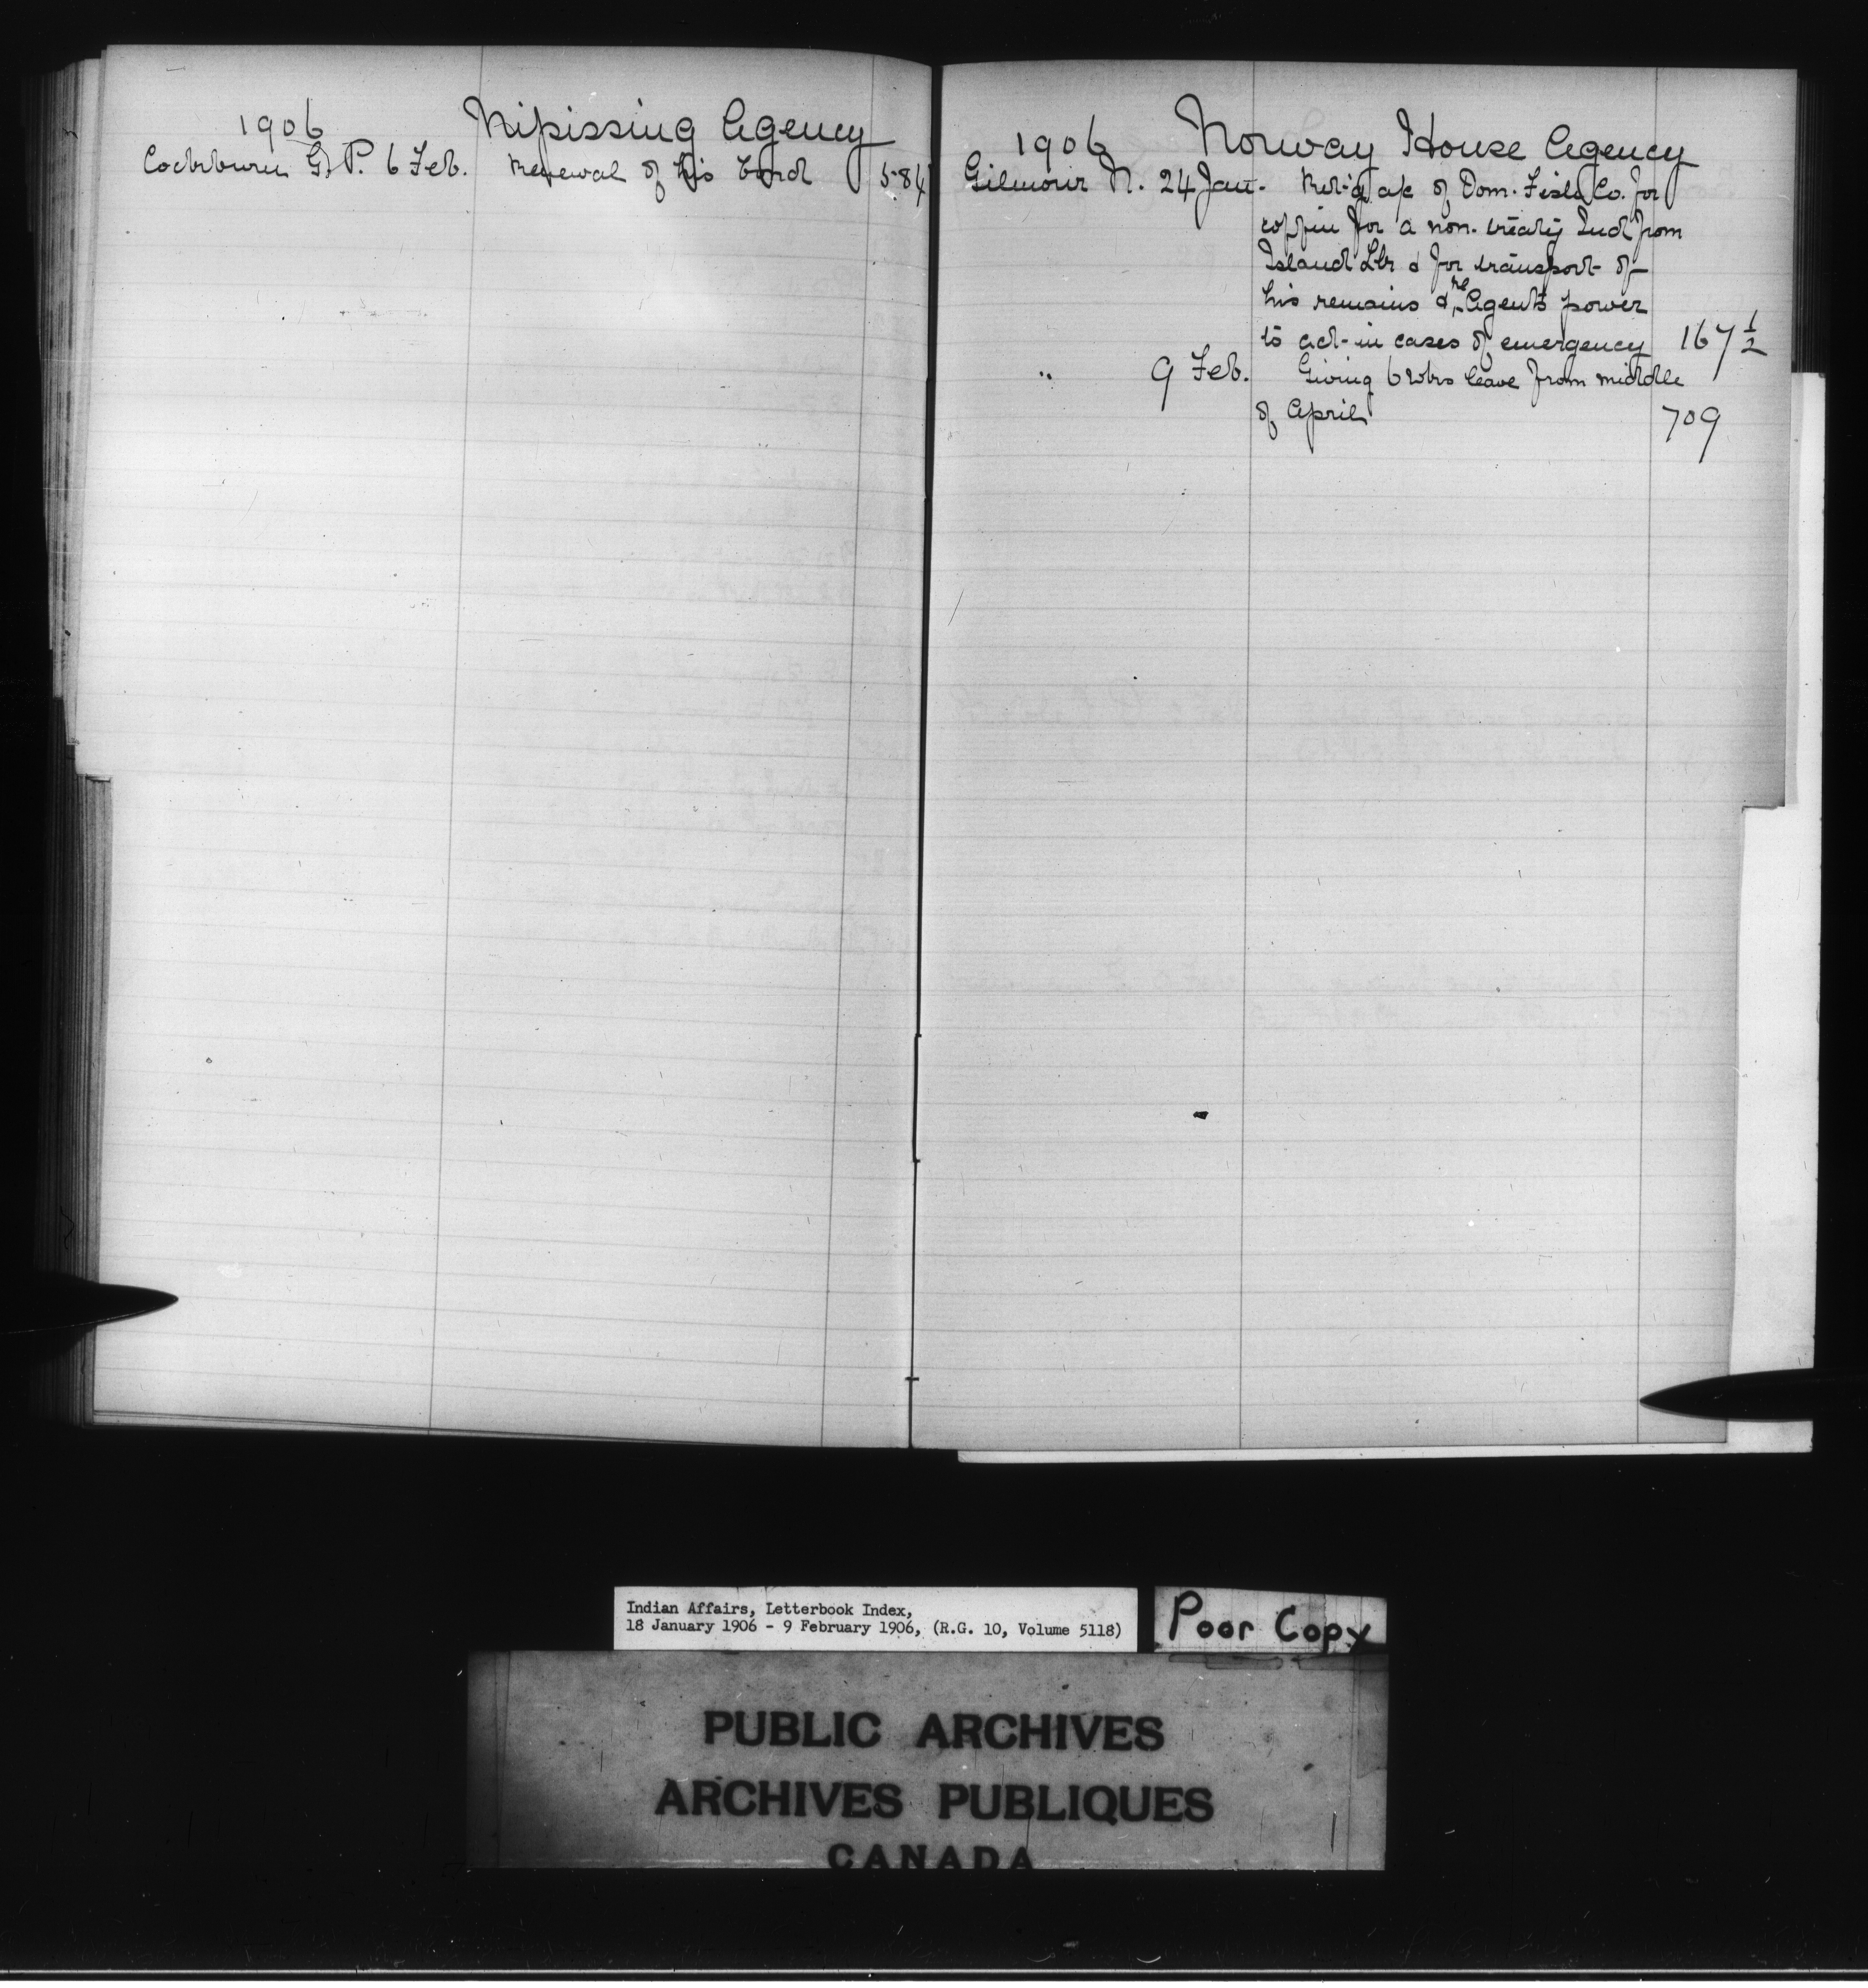 1906 Nipissing Agency
Cockburn G. P. 6 Feb. Renewal of his bond 584
1906 Norway House Agency
Gilmour N. 24 Jan. Ret'g a/c of Dom. Fish Co. for
coffin for a non-treaty Ind from
Island Lke & for transport of
his remains & re Agents power
to act in cases of emergency 167 1/2
" 9 Feb. Giving 6 wks leave from middle
of April 709
Indian Affairs, Letterbook Index,
18 January 1906 - 9 February 1906, (R.G. 10, Volume 5118)
Poor Copy
PUBLIC ARCHIVES
ARCHIVES PUBLIQUES
CANADA